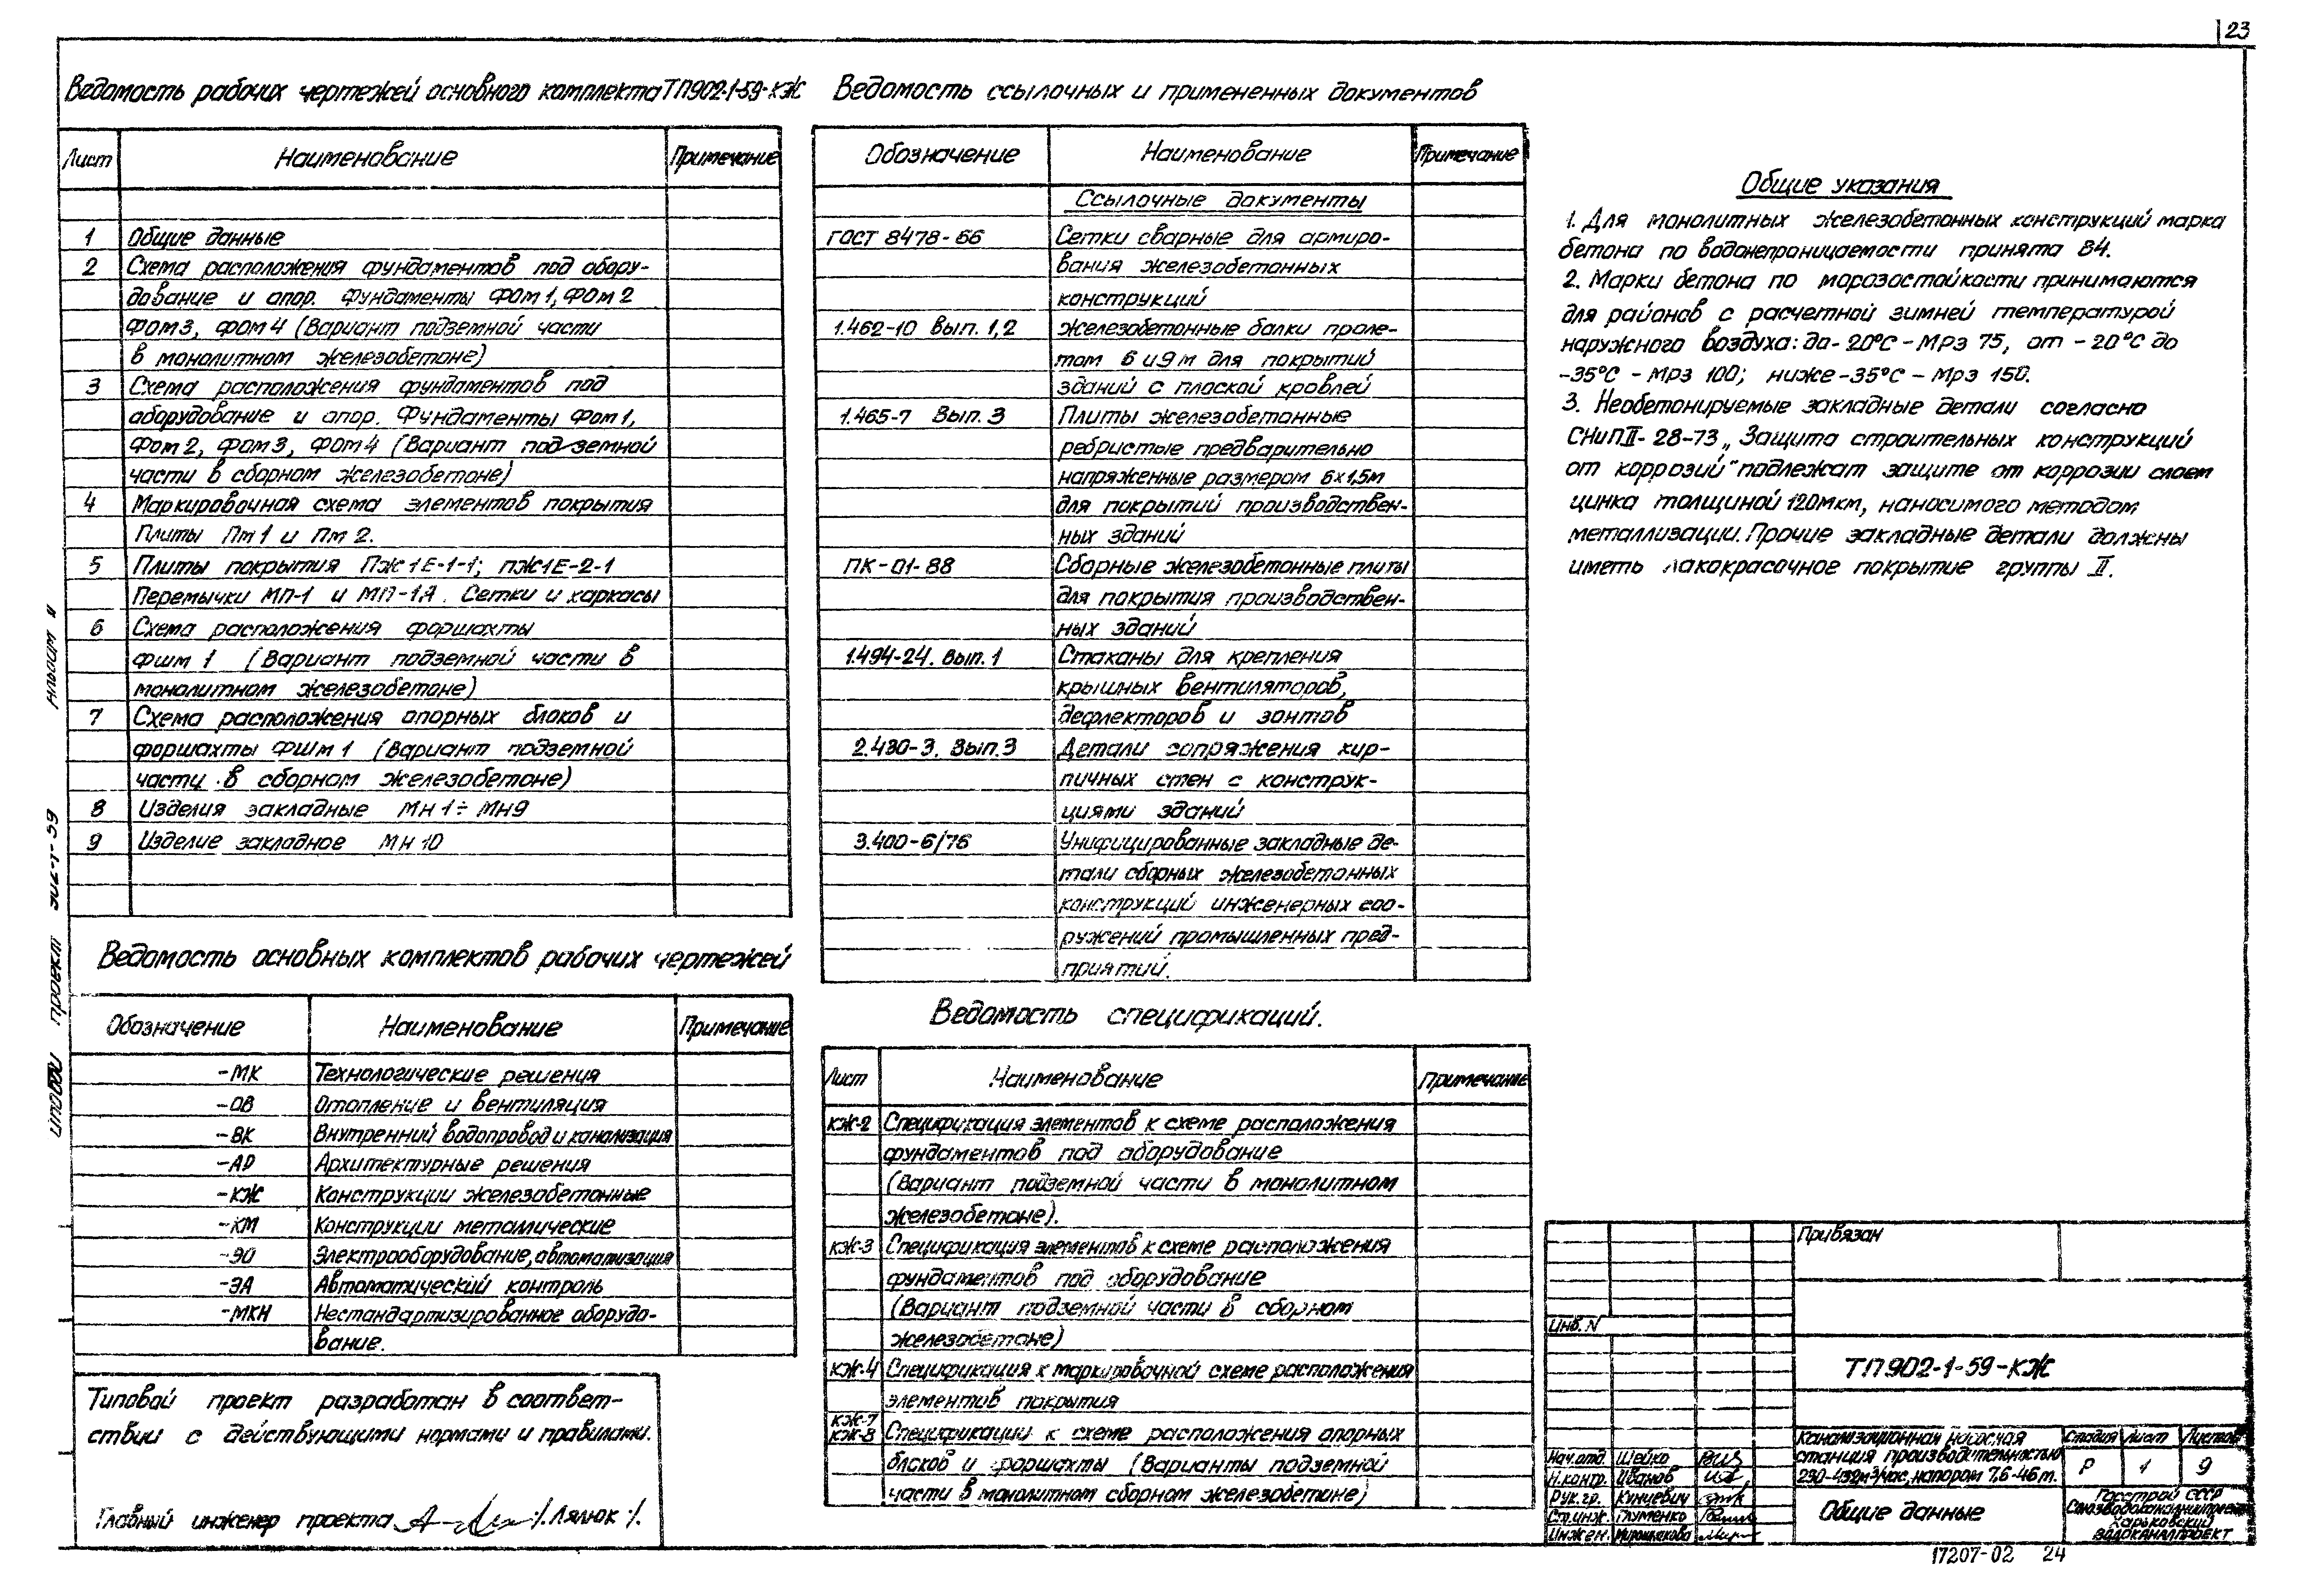 23
Ведомость рабочих чертежей основного комплекта ТП902-1-59-КЖ
Лист Наименование Примечание
1 Общие данные
2 Схема расположения фундаментов под обору-
дование и опор. Фундаменты ФОм1, ФОм2
ФОм3, ФОм4 (Вариант подземной части
в монолитном железобетоне)
3 Схема расположения фундаментов под
оборудование и опор. Фундаменты Фом1,
Фом2, Фом3, Фом4 (Вариант подземной
части в сборном железобетоне)
4 Маркировочная схема элементов покрытия
Плиты Пм1 и Пм2.
5 Плиты покрытия ПЖ1Е-1-1; ПЖ1Е-2-1
Перемычки МП-1 и МП-1А. Сетки и каркасы
6 Схема расположения форшахты
Фшм 1 (Вариант подземной части в
монолитном железобетоне)
7 Схема расположения опорных блоков и
форшахты ФШм1 (Вариант подземной
части в сборном железобетоне)
8 Изделия закладные МН1÷МН9
9 Изделие закладное МН10
Ведомость основных комплектов рабочих чертежей
Обозначение Наименование Примечание
-МК Технологические решения
-ОВ Отопление и вентиляция
-ВК Внутренний водопровод и канализация
-АР Архитектурные решения
-КЖ Конструкции железобетонные
-КМ Конструкции металлические
-ЭО Электрооборудование, автоматизация
-ЭА Автоматический контроль
-МКН Нестандартизированное оборудо-
вание.
Типовой проект разработан в соответ-
ствии с действующими нормами и правилами.
Главный инженер проекта /Лялюк/.
Ведомость ссылочных и примененных документов
Обозначение Наименование Примечание
Ссылочные документы
ГОСТ 8478-66 Сетки сварные для армиро-
вания железобетонных
конструкций
1.462-10 Вып. 1,2 Железобетонные балки проле-
том 6 и 9м для покрытий
зданий с плоской кровлей
1.465-7 Вып. 3 Плиты железобетонные
ребристые предварительно
напряженные размером 6×1,5м
для покрытий производствен-
ных зданий
ПК-01-88 Сборные железобетонные плиты
для покрытия производствен-
ных зданий
1.494-24. Вып. 1 Стаканы для крепления
крышных вентиляторов,
дефлекторов и зонтов
2.430-3. Вып.3 Детали сопряжения кир-
пичных стен с конструк-
циями зданий
3.400-6/76 Унифицированные закладные де-
тали сборных железобетонных
конструкций инженерных соо-
ружений промышленных пред-
приятий.
Ведомость спецификаций.
Лист Наименование Примечание
КЖ-2 Спецификация элементов к схеме расположения
фундаментов под оборудование
(Вариант подземной части в монолитном
железобетоне).
КЖ-3 Спецификация элементов к схеме расположения
фундаментов под оборудование
(Вариант подземной части в сборном
железобетоне)
КЖ-4 Спецификация к маркировочной схеме расположения
элементов покрытия
КЖ-7
КЖ-8 Спецификации к схеме расположения опорных
блоков и форшахты (Варианты подземной
части в монолитном сборном железобетоне)
Общие указания
1. Для монолитных железобетонных конструкций марка
бетона по водонепроницаемости принята В4.
2. Марки бетона по морозостойкости принимаются
для районов с расчетной зимней температурой
наружного воздуха: до -20°С - Мрз 75, от -20°С до
-35°С - Мрз 100; ниже -35°С - Мрз 150.
3. Необетонируемые закладные детали согласно
СНиП II-28-73 „Защита строительных конструкций
от коррозий" подлежат защите от коррозии слоем
цинка толщиной 120мкм, наносимого методом
металлизации. Прочие закладные детали должны
иметь лакокрасочное покрытие группы II.
Привязан
Инв. N
ТП902-1-59-КЖ
Канализационная насосная
станция производительностью
230-432м³/час, напором 7,6-46 м.
Стадия Лист Листов
Р 1 9
Нач.отд. Шейко
Н.контр. Иванов
Рук.гр. Кунцевич
Ст.инж. Глуменко
Инжен.
Общие данные
Госстрой СССР
Союзводоканалниипроект
Харьковский
ВОДОКАНАЛПРОЕКТ
17207-02 24
Типовой проект 902-1-59 Альбом II